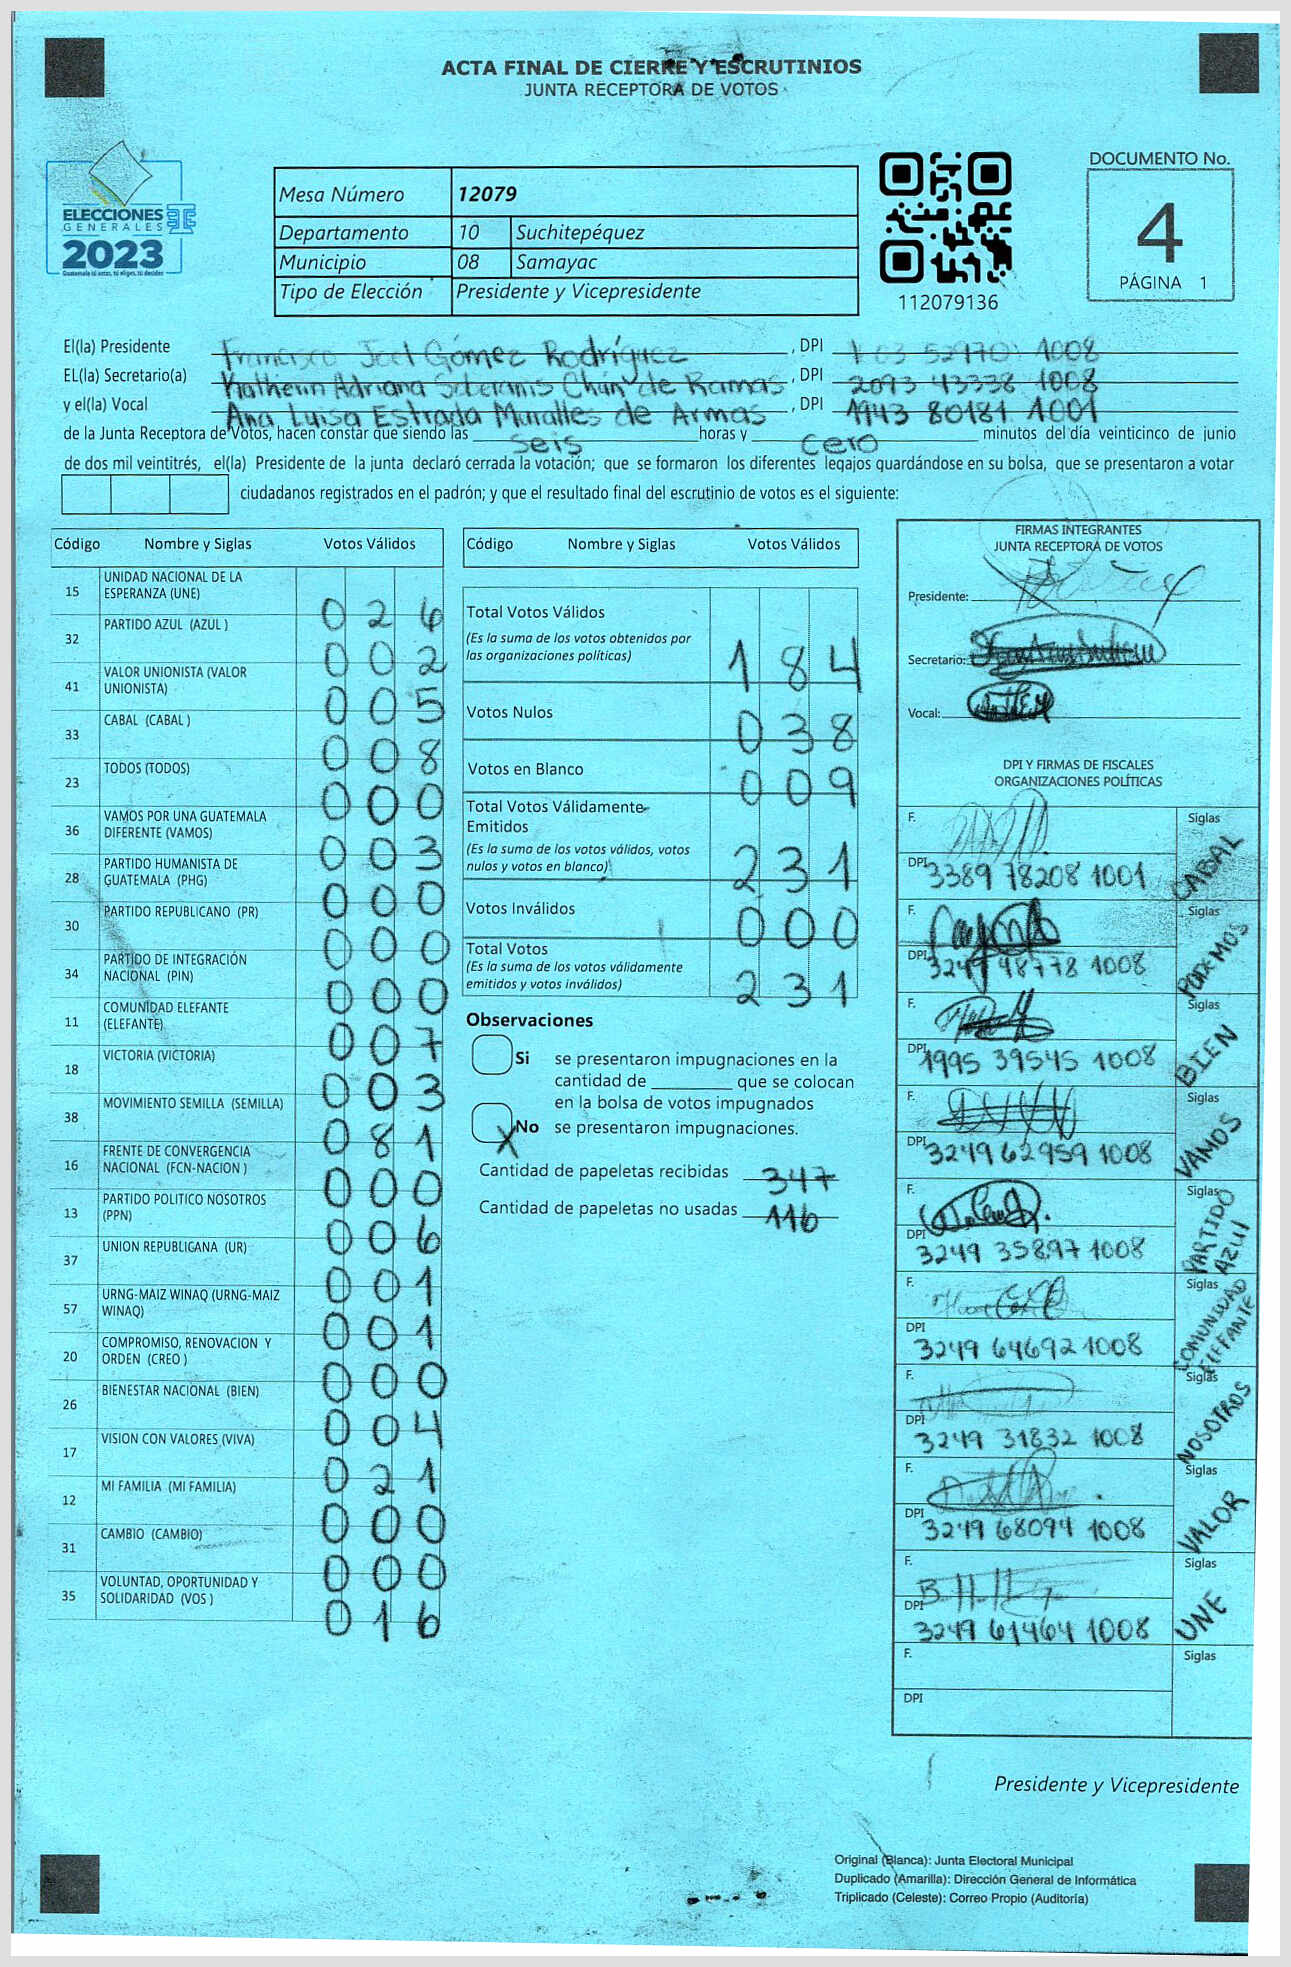 ACTA FINAL DE CIERRE Y ESCRUTINIOS
JUNTA RECEPTORA DE VOTOS
ELECCIONES
GENERALES
2023
Guatemala tú estás, tú eliges, tú decides
Mesa Número 12079
Departamento 10 Suchitepéquez
Municipio 08 Samayac
Tipo de Elección Presidente y Vicepresidente
112079136
DOCUMENTO No.
4
PÁGINA 1
El(la) Presidente Francisco Joel Gómez Rodríguez, DPI 03 52970 1008
EL(la) Secretario(a) Katherin Adriana Chán de Ramas, DPI 2093 43338 1008
y el(la) Vocal Ana Luisa Estrada Muralles de Armas, DPI 1943 80181 1001
de la Junta Receptora de Votos, hacen constar que siendo las seis horas y cero minutos del día veinticinco de junio
de dos mil veintitrés, el(la) Presidente de la junta declaró cerrada la votación; que se formaron los diferentes legajos guardándose en su bolsa, que se presentaron a votar
ciudadanos registrados en el padrón; y que el resultado final del escrutinio de votos es el siguiente:
Código Nombre y Siglas Votos Válidos
15 UNIDAD NACIONAL DE LA ESPERANZA (UNE) 026
32 PARTIDO AZUL (AZUL ) 002
41 VALOR UNIONISTA (VALOR UNIONISTA) 005
33 CABAL (CABAL ) 008
23 TODOS (TODOS) 000
36 VAMOS POR UNA GUATEMALA DIFERENTE (VAMOS) 003
28 PARTIDO HUMANISTA DE GUATEMALA (PHG) 000
30 PARTIDO REPUBLICANO (PR) 000
34 PARTIDO DE INTEGRACIÓN NACIONAL (PIN) 000
11 COMUNIDAD ELEFANTE (ELEFANTE) 007
18 VICTORIA (VICTORIA) 003
38 MOVIMIENTO SEMILLA (SEMILLA) 081
16 FRENTE DE CONVERGENCIA NACIONAL (FCN-NACION ) 000
13 PARTIDO POLITICO NOSOTROS (PPN) 006
37 UNION REPUBLICANA (UR) 001
57 URNG-MAIZ WINAQ (URNG-MAIZ WINAQ) 001
20 COMPROMISO, RENOVACION Y ORDEN (CREO ) 000
26 BIENESTAR NACIONAL (BIEN) 004
17 VISION CON VALORES (VIVA) 021
12 MI FAMILIA (MI FAMILIA) 000
31 CAMBIO (CAMBIO) 000
35 VOLUNTAD, OPORTUNIDAD Y SOLIDARIDAD (VOS ) 016
Código Nombre y Siglas Votos Válidos
Total Votos Válidos 184
(Es la suma de los votos obtenidos por
las organizaciones políticas)
Votos Nulos 038
Votos en Blanco 009
Total Votos Válidamente
Emitidos 231
(Es la suma de los votos válidos, votos
nulos y votos en blanco)
Votos Inválidos 000
Total Votos 231
(Es la suma de los votos válidamente
emitidos y votos inválidos)
Observaciones
Si se presentaron impugnaciones en la
cantidad de ________ que se colocan
en la bolsa de votos impugnados
X No se presentaron impugnaciones.
Cantidad de papeletas recibidas 347
Cantidad de papeletas no usadas 116
FIRMAS INTEGRANTES
JUNTA RECEPTORA DE VOTOS
Presidente:
Secretario:
Vocal:
DPI Y FIRMAS DE FISCALES
ORGANIZACIONES POLÍTICAS
F. Siglas CABAL
DPI 3389 78208 1001
F. Siglas PODEMOS
DPI 3249 48778 1008
F. Siglas BIEN
DPI 1995 39545 1008
F. Siglas VAMOS
DPI 3249 62959 1008
F. Siglas PARTIDO AZUL
DPI 3249 35897 1008
F. Siglas COMUNIDAD ELEFANTE
DPI 3249 64692 1008
F. Siglas NOSOTROS
DPI 3249 31832 1008
F. Siglas VALOR
DPI 3249 68094 1008
F. Siglas UNE
DPI 3249 61464 1008
F. Siglas
DPI
Presidente y Vicepresidente
Original (Blanca): Junta Electoral Municipal
Duplicado (Amarilla): Dirección General de Informática
Triplicado (Celeste): Correo Propio (Auditoría)